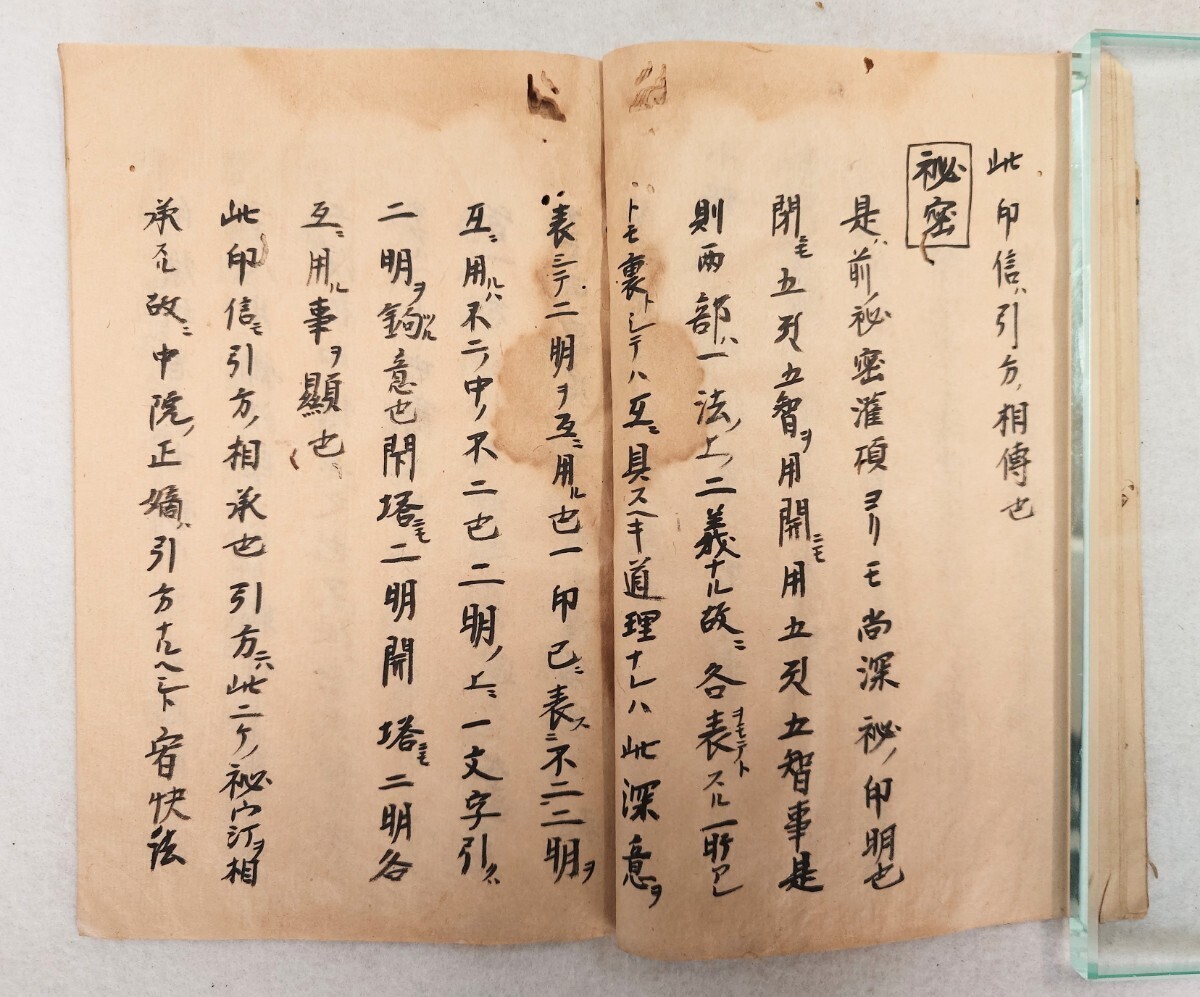 此印信ハ引方ノ相傳也
祕密
是ハ前ノ祕密灌頂ヨリモ尚深祕ノ印明也
閉ニモ五股五智ヲ用開ニモ用五股五智事是
則兩部ハ一法ノ上ノ二義ナル故ニ各表ヲモテトスル一時アレ
トモ裏トシテハ互ニ具スヘキ道理ナレハ此深意ヲ
表シテ二明ヲ互ニ用ル也一印已ニ表ス不二ニ二明ヲ
互ニ用ルハ不二ノ中ノ不二也二明ノ上ニ一文字引クハ
二明ヲ鉤意也閉塔ニモ二明開塔ニモ二明各
互ニ用ル事ヲ顯也
此印信モ引方ノ相承也引方ニハ此二ケノ祕宀汀ヲ相
承スル故ニ中院ノ正嫡ハ引方ナルヘシト宥快法